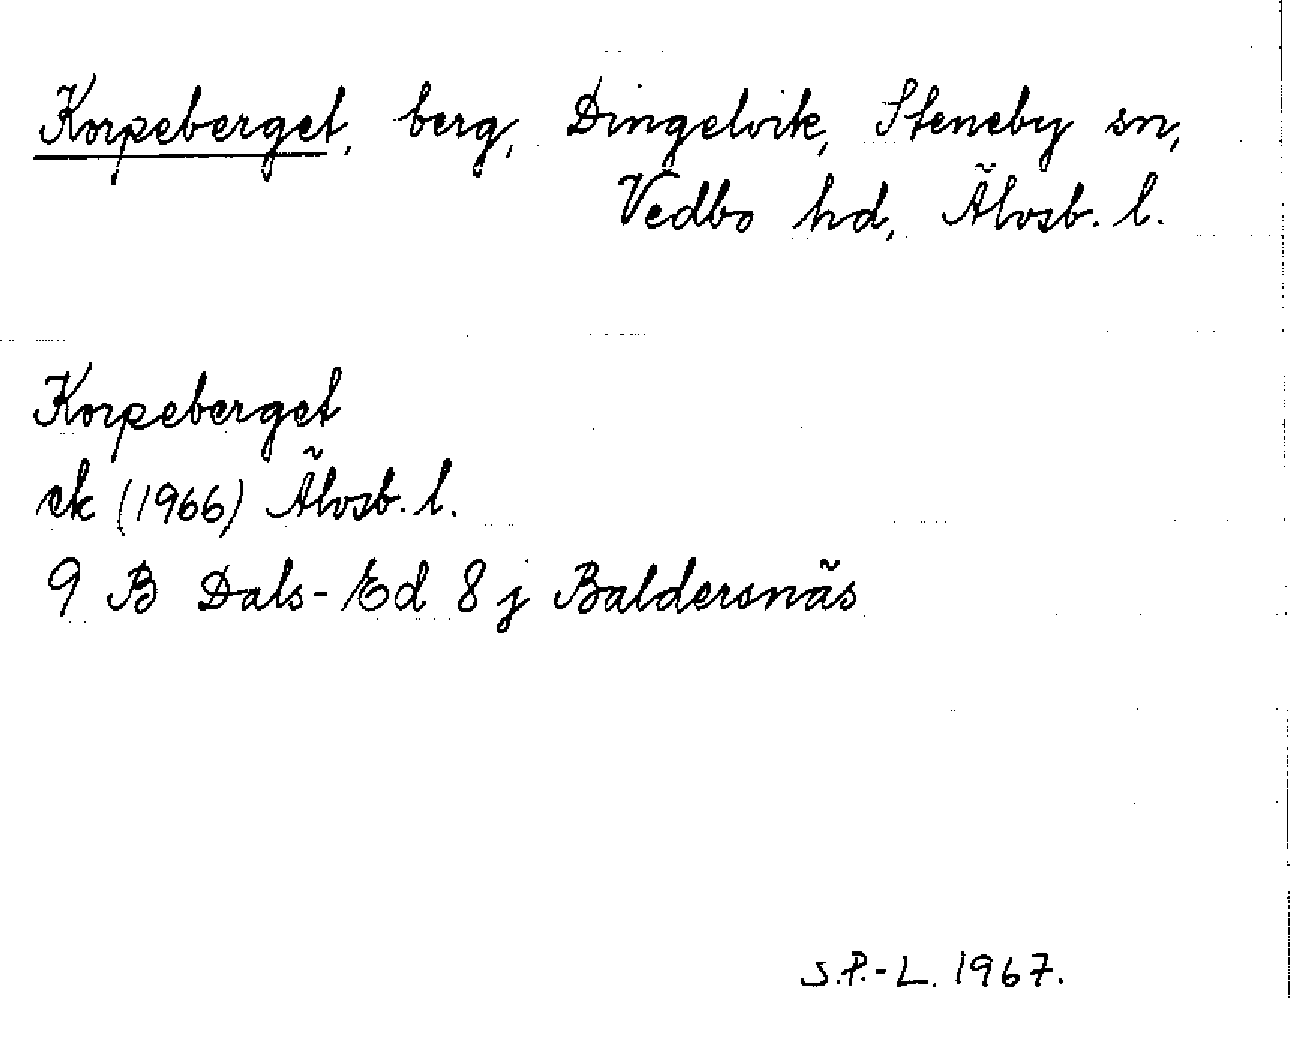 Korpeberget, berg, Dingelvik, Steneby sn,
Vedbo hd, Älvsb. l.
Korpeberget
ek (1966) Älvsb. l.
9 B Dals-Ed 8 j Baldersnäs
S.P.-L. 1967.